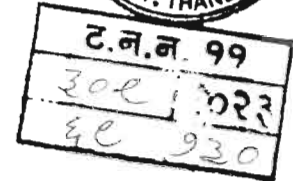 . THAN
ट.न.न. ११
३०९ २०२३
६९ १३०